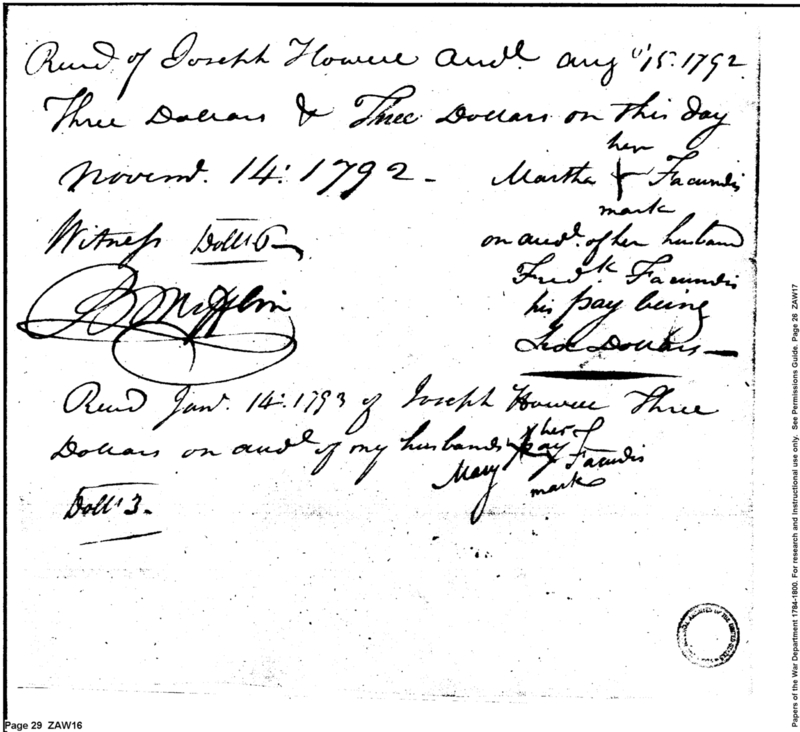 Recd of Joseph Howell Audr. Augt 15. 1792
Three Dollars & Three Dollars on this day
Novemr. 14: 1792 -
her
Martha + Facundis
mark
Witness Dolls 6
on acct. of her husband
Fredk Facundis
his pay being
Six Dollars —
B Mifflin
Recd Jany. 14: 1793 of Joseph Howell Three
Dollars on acct of my husbands pay
her
Mary + Facundis
mark
Dolls 3 -
Page 29 ZAW16
Papers of the War Department 1784-1800. For research and Instructional use only. See Permissions Guide. Page 26 ZAW17